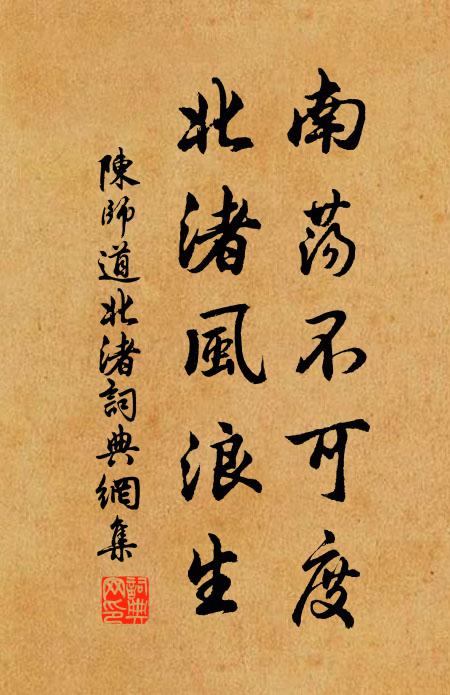 南蕩不可度
北渚風浪生
陳師道北渚詞典網集
詞典
网印